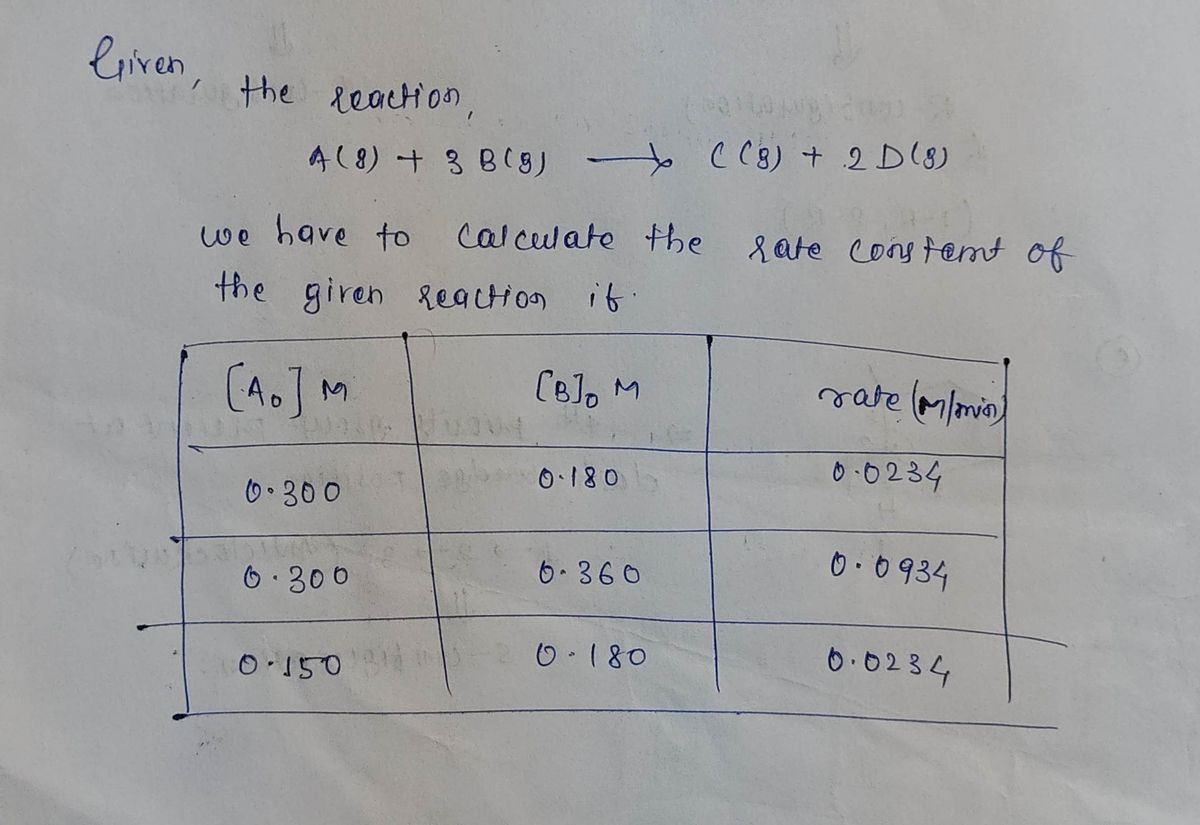 Given,
the reaction,
A(g) + 3 B(g) → C(g) + 2 D(g)
we have to calculate the rate constant of
the given reaction if.
[A₀] M [B]₀ M rate (M/min)
0.300 0.180 0.0234
0.300 0.360 0.0934
0.150 0.180 0.0234